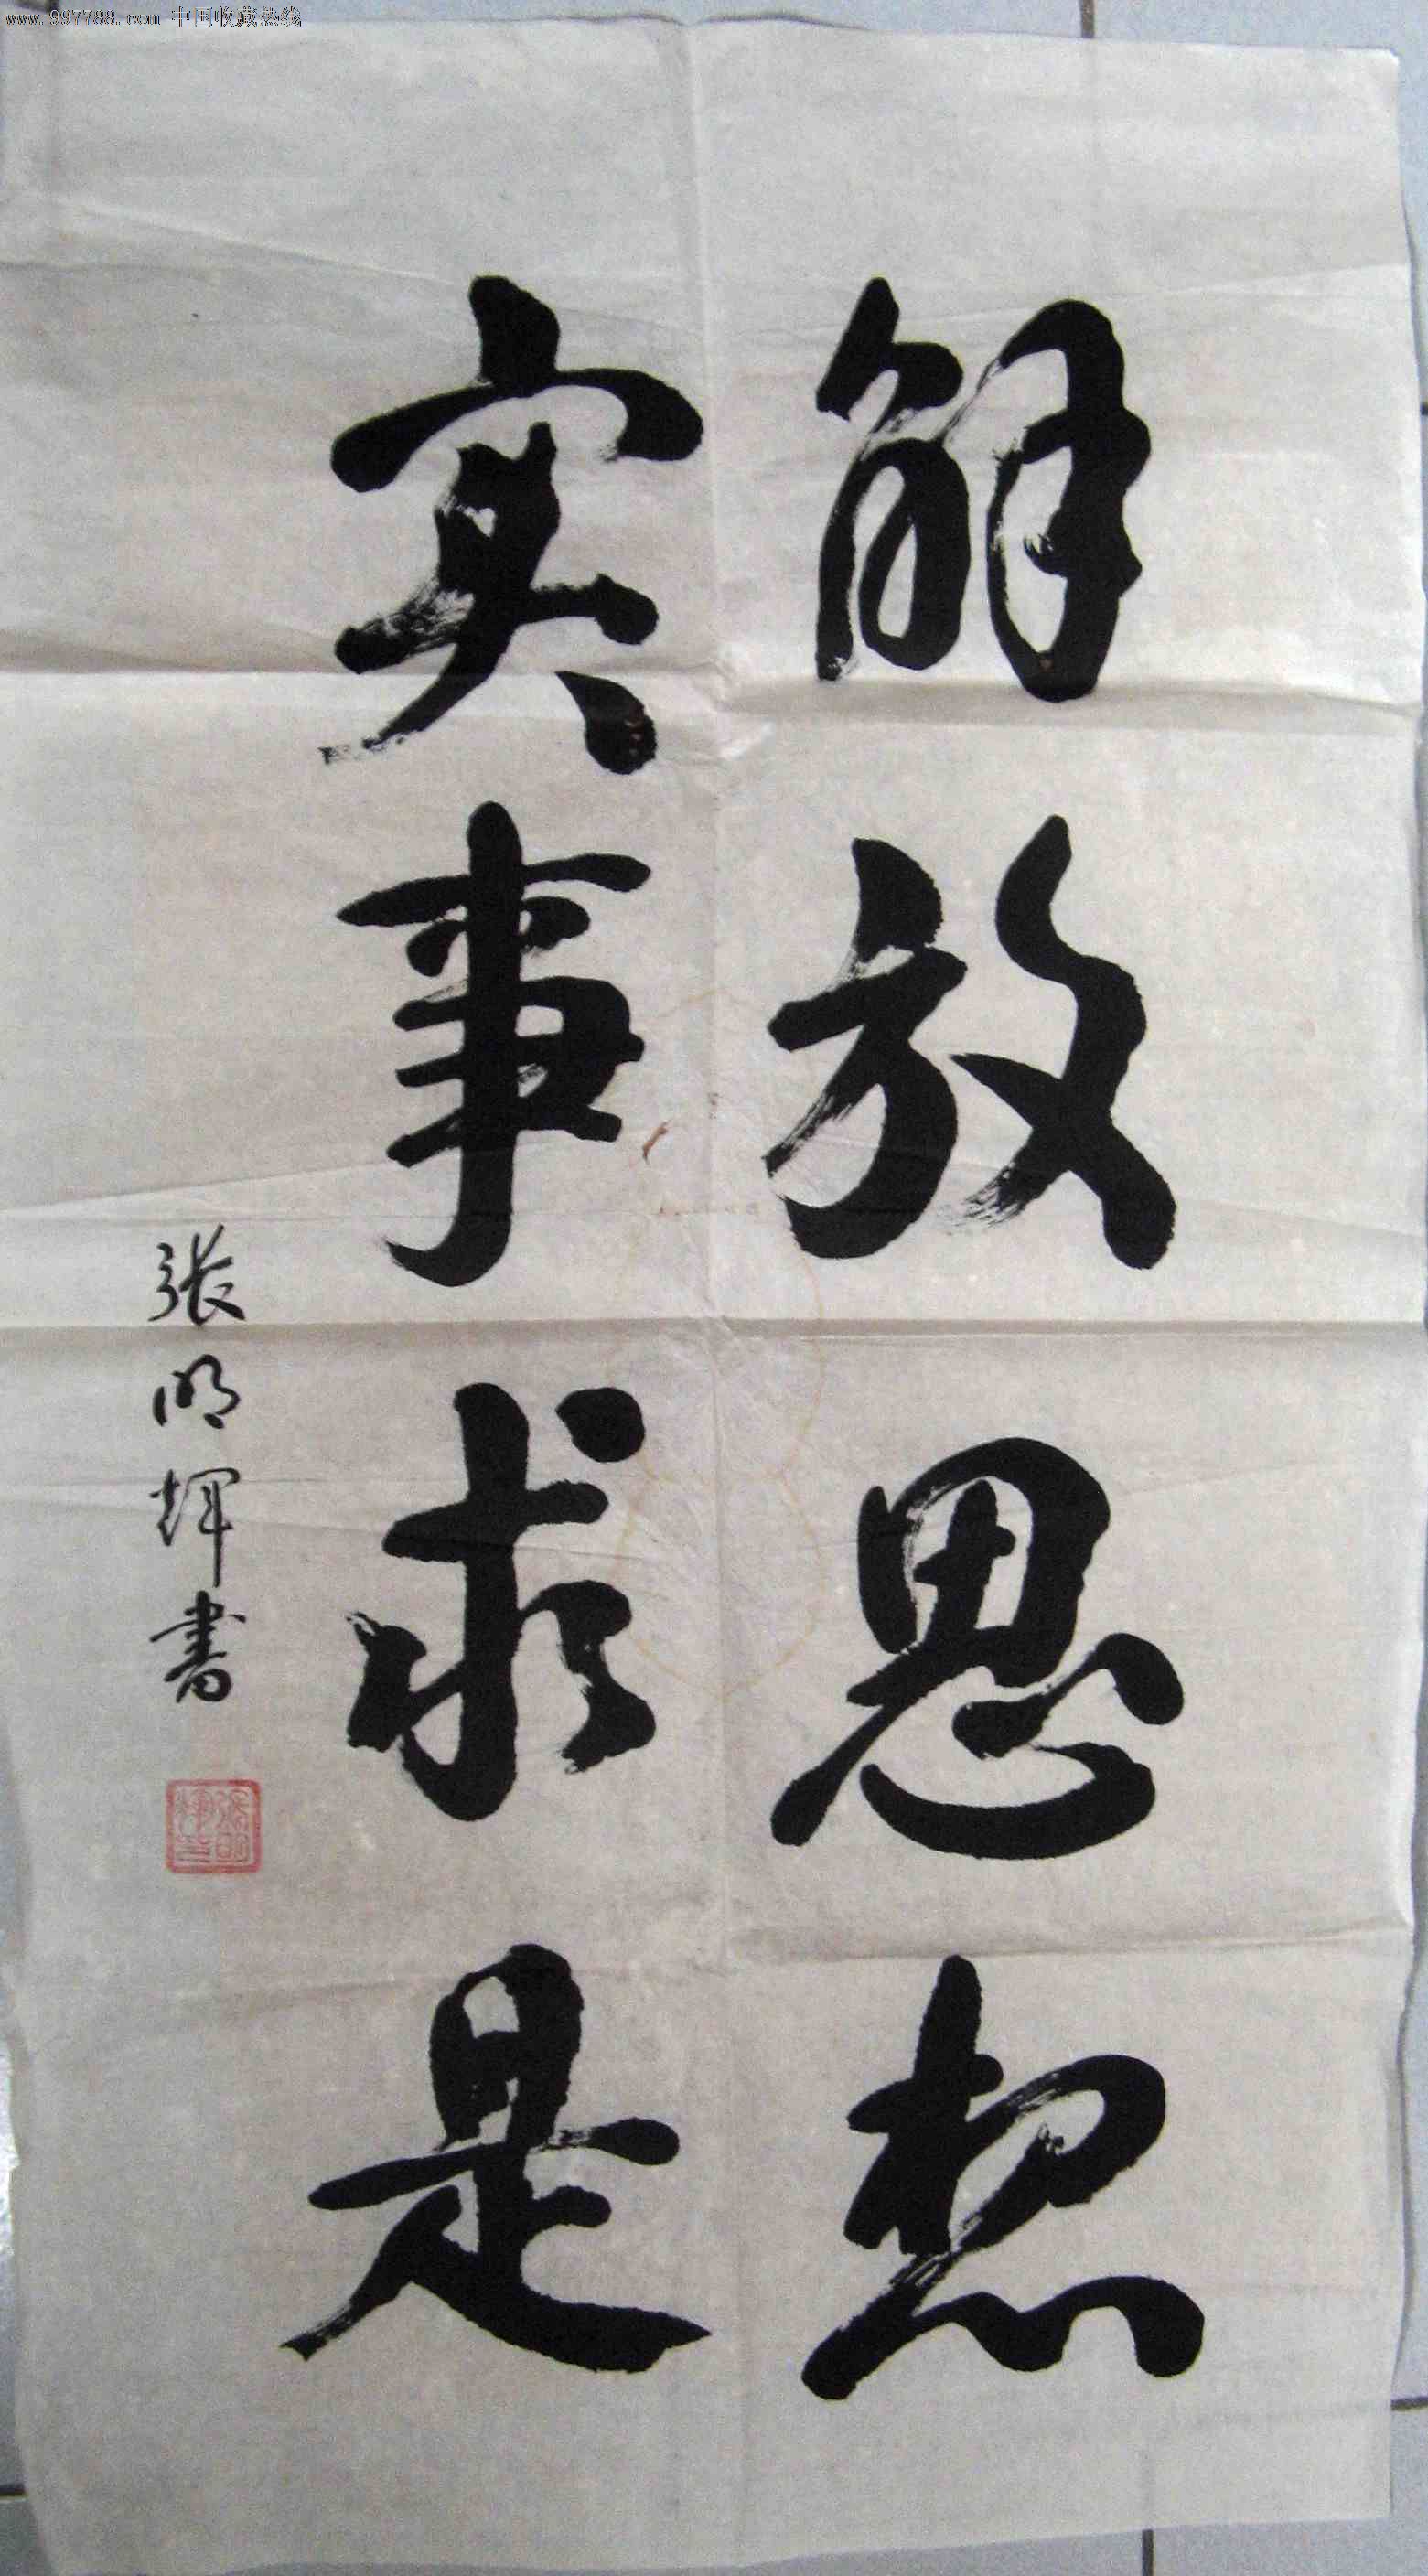 www.997788.com 中国收藏热线
解放思想
实事求是
张明辉書